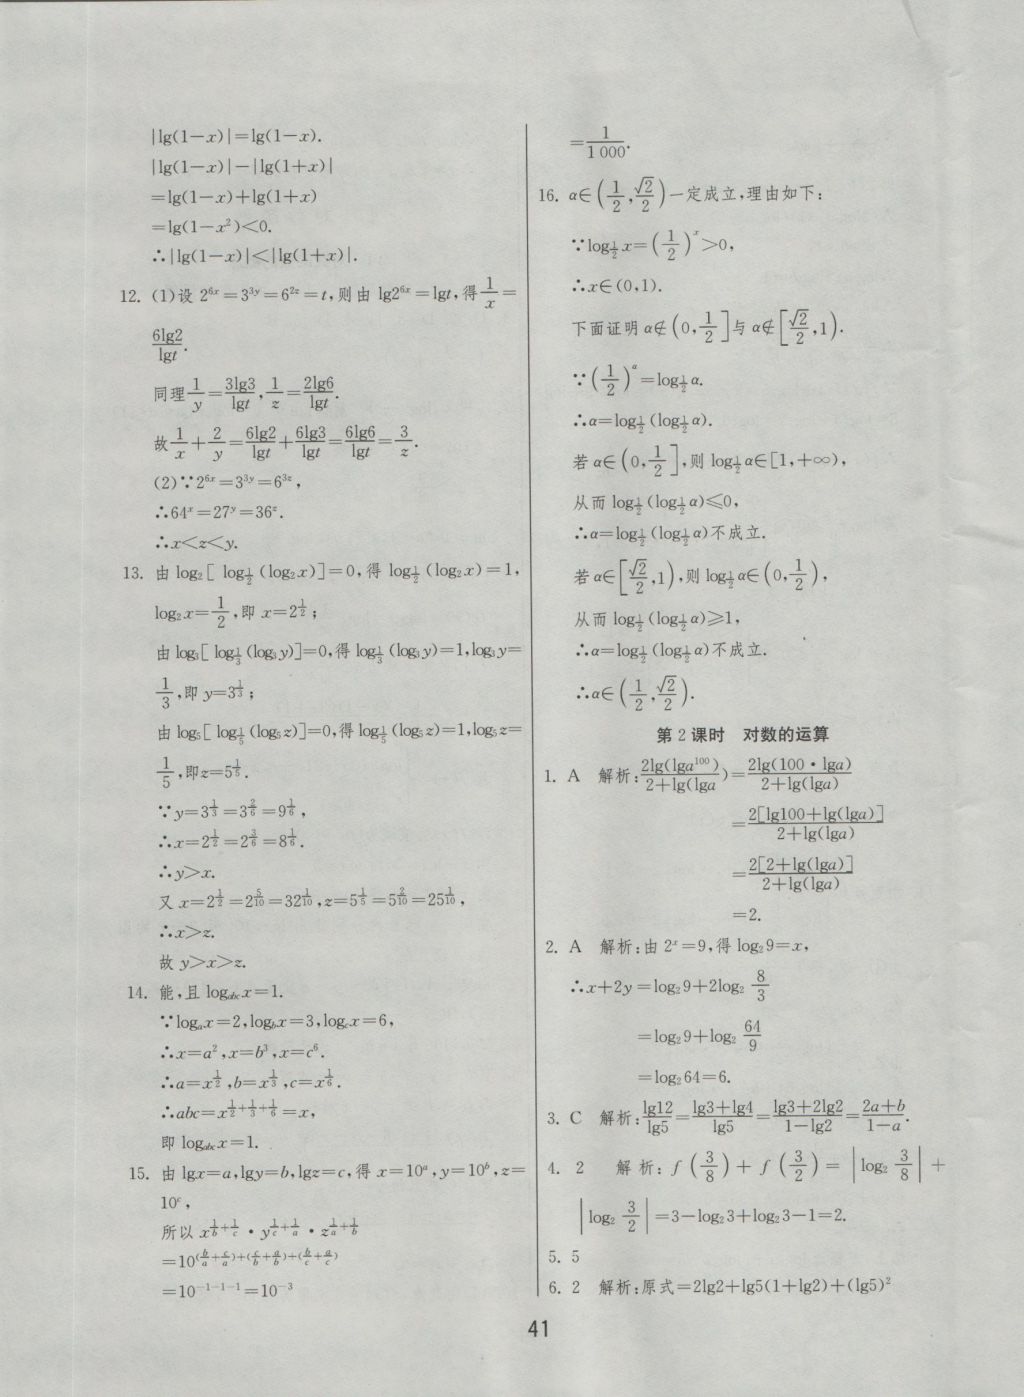 |lg(1－x)|＝lg(1－x).
|lg(1－x)|－|lg(1＋x)|
＝lg(1－x)＋lg(1＋x)
＝lg(1－x²)＜0.
∴|lg(1－x)|＜|lg(1＋x)|.
12. (1)设 2^{6x}＝3^{3y}＝6^{2z}＝t,则由 lg2^{6x}＝lgt,得\frac{1}{x}＝
\frac{6lg2}{lgt}.
同理\frac{1}{y}＝\frac{3lg3}{lgt},\frac{1}{z}＝\frac{2lg6}{lgt}.
故\frac{1}{x}＋\frac{2}{y}＝\frac{6lg2}{lgt}＋\frac{6lg3}{lgt}＝\frac{6lg6}{lgt}＝\frac{3}{z}.
(2)∵2^{6x}＝3^{3y}＝6^{3z},
∴64^x＝27^y＝36^z.
∴x＜z＜y.
13. 由 log_2[ log_{\frac{1}{2}}(log_2x)]＝0,得 log_{\frac{1}{2}}(log_2x)＝1,
log_2x＝\frac{1}{2},即 x＝2^{\frac{1}{2}};
由 log_3[ log_{\frac{1}{3}}(log_3y)]＝0,得 log_{\frac{1}{3}}(log_3y)＝1,log_3y＝
\frac{1}{3},即 y＝3^{\frac{1}{3}};
由 log_5[ log_{\frac{1}{5}}(log_5z)]＝0,得 log_{\frac{1}{5}}(log_5z)＝1,log_5z＝
\frac{1}{5},即 z＝5^{\frac{1}{5}}.
∵y＝3^{\frac{1}{3}}＝3^{\frac{2}{6}}＝9^{\frac{1}{6}},
∴x＝2^{\frac{1}{2}}＝2^{\frac{3}{6}}＝8^{\frac{1}{6}}.
∴y＞x.
又 x＝2^{\frac{1}{2}}＝2^{\frac{5}{10}}＝32^{\frac{1}{10}},z＝5^{\frac{1}{5}}＝5^{\frac{2}{10}}＝25^{\frac{1}{10}},
∴x＞z.
故 y＞x＞z.
14. 能,且 log_{abc}x＝1.
∵log_ax＝2,log_bx＝3,log_cx＝6,
∴x＝a²,x＝b³,x＝c⁶.
∴a＝x^{\frac{1}{2}},b＝x^{\frac{1}{3}},c＝x^{\frac{1}{6}}.
∴abc＝x^{\frac{1}{2}＋\frac{1}{3}＋\frac{1}{6}}＝x,
即 log_{abc}x＝1.
15. 由 lgx＝a,lgy＝b,lgz＝c,得 x＝10^a,y＝10^b,z＝
10^c,
所以 x^{\frac{1}{b}＋\frac{1}{c}}·y^{\frac{1}{c}＋\frac{1}{a}}·z^{\frac{1}{a}＋\frac{1}{b}}
＝10^{(\frac{b}{a}＋\frac{c}{a})＋(\frac{c}{b}＋\frac{a}{b})＋(\frac{b}{c}＋\frac{a}{c})}
＝10^{－1－1－1}＝10^{－3}
＝\frac{1}{1 000}.
16. α∈(\frac{1}{2},\frac{√2}{2})一定成立,理由如下:
∵log_{\frac{1}{2}}x＝(\frac{1}{2})^x＞0,
∴x∈(0,1).
下面证明 α∉(0,\frac{1}{2}]与 α∉[\frac{√2}{2},1).
∵(\frac{1}{2})^α＝log_{\frac{1}{2}}α.
∴α＝log_{\frac{1}{2}}(log_{\frac{1}{2}}α).
若 α∈(0,\frac{1}{2}],则 log_{\frac{1}{2}}α∈[1,＋∞),
从而 log_{\frac{1}{2}}(log_{\frac{1}{2}}α)≤0,
∴α＝log_{\frac{1}{2}}(log_{\frac{1}{2}}α)不成立.
若 α∈[\frac{√2}{2},1),则 log_{\frac{1}{2}}α∈(0,\frac{1}{2}),
从而 log_{\frac{1}{2}}(log_{\frac{1}{2}}α)≥1,
∴α＝log_{\frac{1}{2}}(log_{\frac{1}{2}}α)不成立.
∴α∈(\frac{1}{2},\frac{√2}{2}).
第 2 课时 对数的运算
1. A 解析:\frac{2lg(lga^{100})}{2＋lg(lga})＝\frac{2lg(100·lga)}{2＋lg(lga)}
＝\frac{2[lg100＋lg(lga)]}{2＋lg(lga)}
＝\frac{2[2＋lg(lga)]}{2＋lg(lga)}
＝2.
2. A 解析:由 2^x＝9,得 log_29＝x,
∴x＋2y＝log_29＋2log_2\frac{8}{3}
＝log_29＋log_2\frac{64}{9}
＝log_264＝6.
3. C 解析:\frac{lg12}{lg5}＝\frac{lg3＋lg4}{lg5}＝\frac{lg3＋2lg2}{1－lg2}＝\frac{2a＋b}{1－a}.
4. 2 解析:f(\frac{3}{8})＋f(\frac{3}{2})＝|log_2\frac{3}{8}|＋
|log_2\frac{3}{2}|＝3－log_23＋log_23－1＝2.
5. 5
6. 2 解析:原式＝2lg2＋lg5(1＋lg2)＋(lg5)²
41